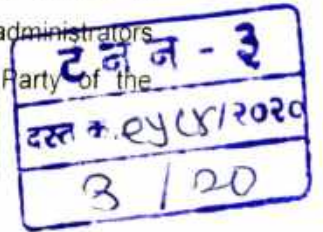 administrators
Party of the
ट न न - ३
दस्त क्र. /२०२०
3 / 20